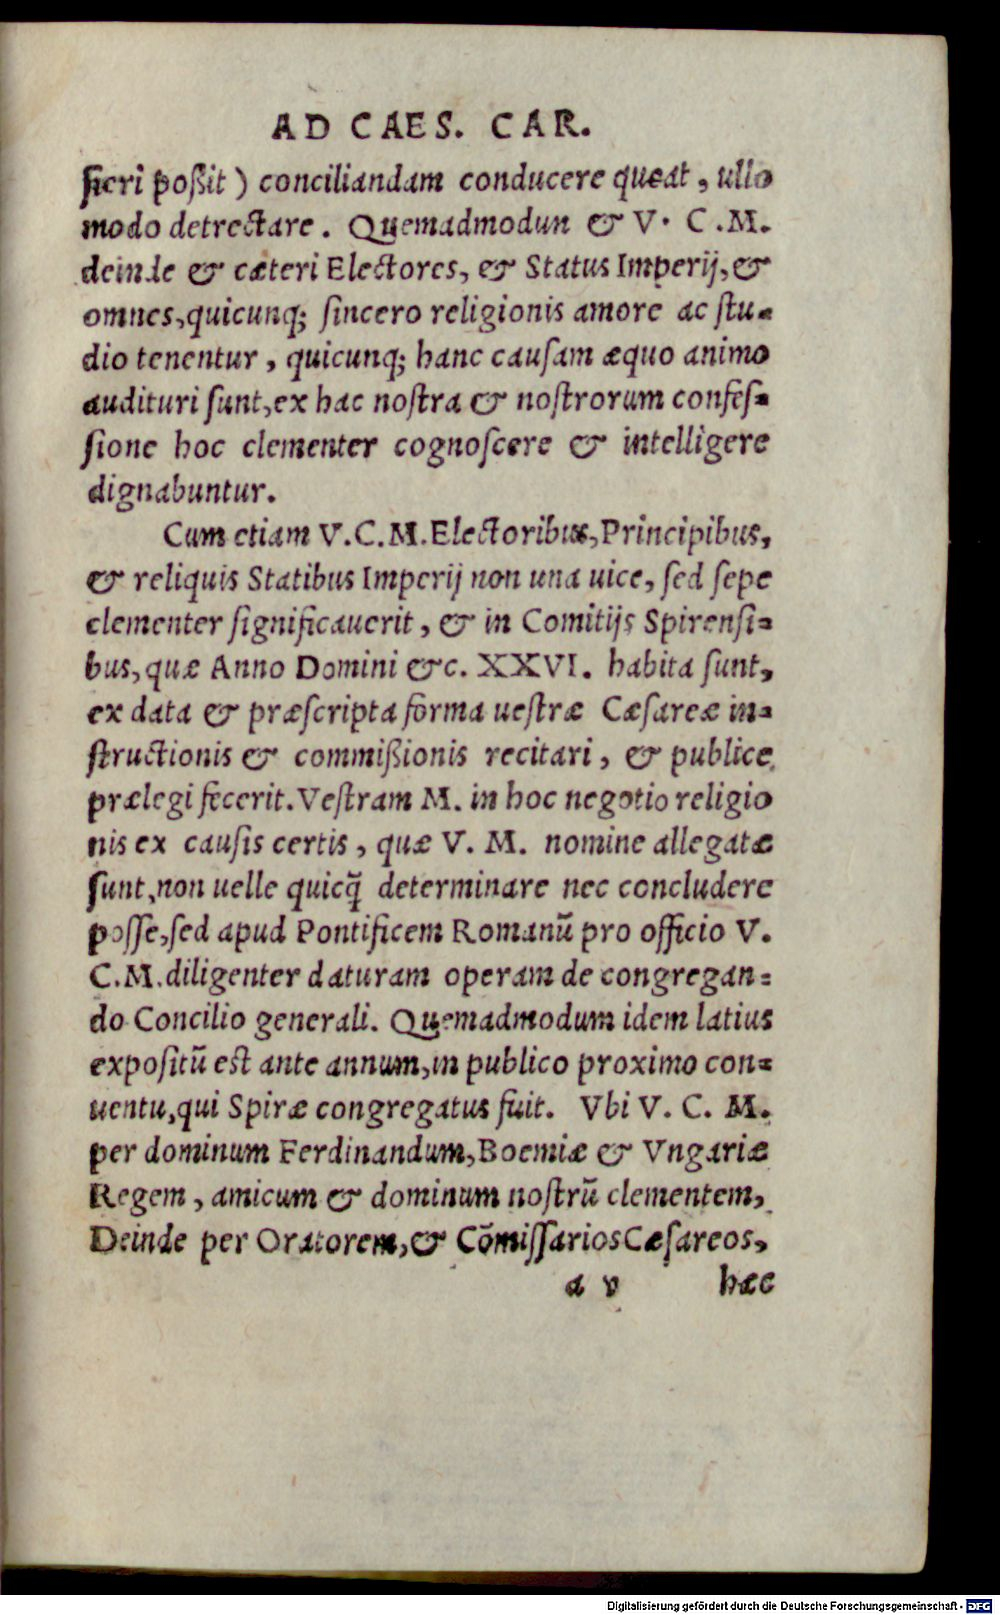 AD CAES. CAR.
fieri poßit) conciliandam conducere queat, ullo
modo detrectare. Quemadmodun & V. C.M.
deinde & cæteri Electores, & Status Imperij, &
omnes, quicunq; sincero religionis amore ac stu-
dio tenentur, quicunq; hanc causam æquo animo
audituri sunt, ex hac nostra & nostrorum confes-
sione hoc clementer cognoscere & intelligere
dignabuntur.
Cum etiam V.C.M. Electoribus, Principibus,
& reliquis Statibus Imperij non una uice, sed sepe
clementer significauerit, & in Comitijs Spirensi-
bus, quæ Anno Domini &c. XXVI. habita sunt,
ex data & præscripta forma uestræ Cæsareæ in-
structionis & commißionis recitari, & publice
prælegi fecerit. Vestram M. in hoc negotio religio
nis ex causis certis, quæ V. M. nomine allegatæ
sunt, non uelle quicq̃ determinare nec concludere
posse, sed apud Pontificem Romanũ pro officio V.
C.M. diligenter daturam operam de congregan-
do Concilio generali. Quemadmodum idem latius
expositũ est ante annum, in publico proximo con-
uentu, qui Spiræ congregatus fuit. Vbi V. C. M.
per dominum Ferdinandum, Boemiæ & Vngariæ
Regem, amicum & dominum nostrũ clementem,
Deinde per Oratorem, & Cõmissarios Cæsareos,
a v hæc
Digitalisierung gefördert durch die Deutsche Forschungsgemeinschaft - DFG